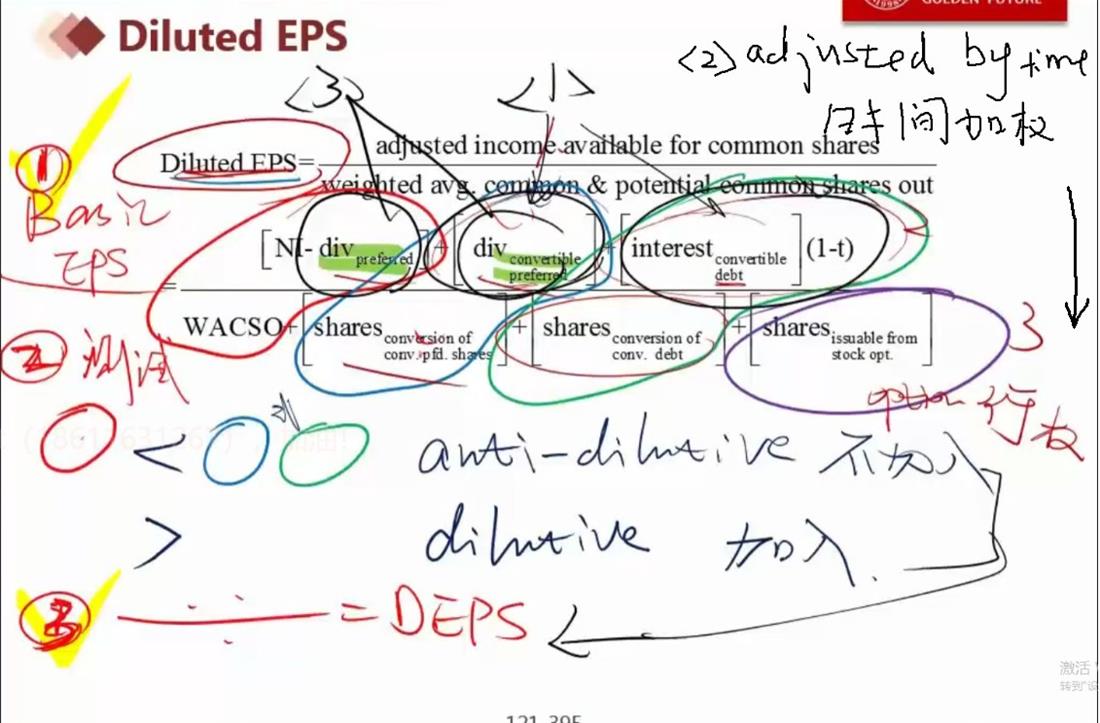 GOLDEN FUTURE
Diluted EPS
<2> adjusted by time
时间加权
<3> <1>
① Diluted EPS= adjusted income available for common shares
weighted avg. common & potential common shares out
Basic
EPS
[NI- div preferred] + [div convertible preferred] + [interest convertible debt] (1-t)
= WACSO+ [shares conversion of conv. pfd. shares] + [shares conversion of conv. debt] + [shares issuable from stock opt.] 3
② 测试
option 行权
< anti-dilutive 不加入
> dilutive 加入
③ = DEPS
激活
转到"设
121-395